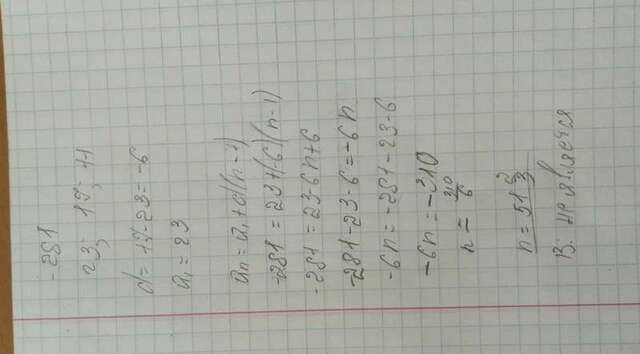 -281
23; 17; 11
d = 17-23 = -6
a₁ = 23
an = a₁+d(n-1)
-281 = 23+(-6)(n-1)
-281 = 23-6n+6
-281-23-6 = -6n
-6n = -281-23-6
-6n = -310
n = 310/6
n = 51 2/3
В: не является